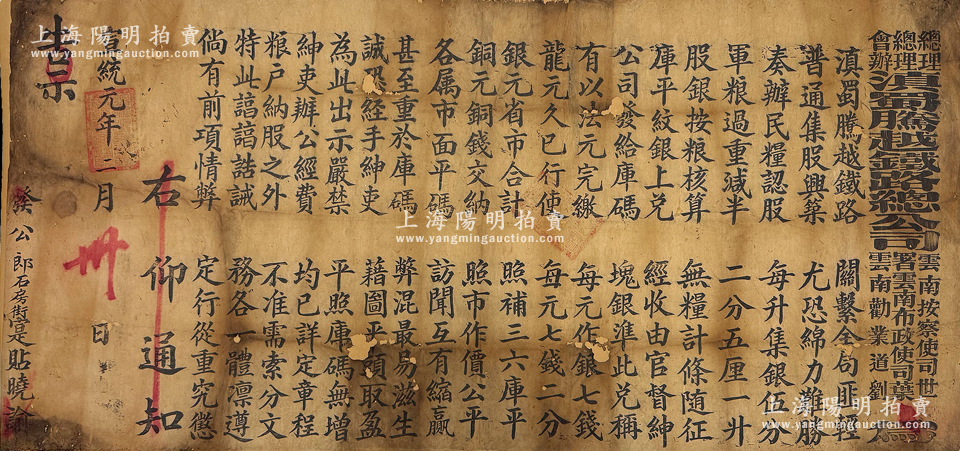 總理 雲南按察使司世
總理 滇蜀騰越鐵路總公司 署雲南布政使司葉 為
會辦 雲南勸業道劉
滇蜀騰越鐵路 關繫全局匪輕
普通集股興築 尤恐綿力難勝
奏辦民糧認股 每升集銀伍分
軍粮過重減半 二分五厘一升
股銀按粮核算 無糧計條隨征
庫平紋銀上兌 經收由官督紳
公司發給庫碼 塊銀準此兌稱
有以法元完繳 每元作銀七錢
龍元久已行使 每元七錢二分
銀元省市合計 照補三六庫平
銅元銅錢交納 照市作價公平
各属市面平碼 訪聞互有縮贏
甚至重於庫碼 弊混最易滋生
誠恐經手紳吏 藉圖平頭取盈
為此出示嚴禁 平照庫碼無增
紳吏辦公經費 均已詳定章程
粮户納股之外 不准需索分文
特此諄諄誥誡 務各一體凛遵
倘有前項情弊 定行從重究懲
右仰通知
宣統元年二月卅日
發公郎石房 貼曉諭
上海陽明拍賣
www.yangmingauction.com
上海陽明拍賣
www.yangmingauction.com
上海陽明拍賣
www.yangmingauction.com
上海陽明拍賣
www.yangmingauction.com
上海陽明拍賣
www.yangmingauction.com